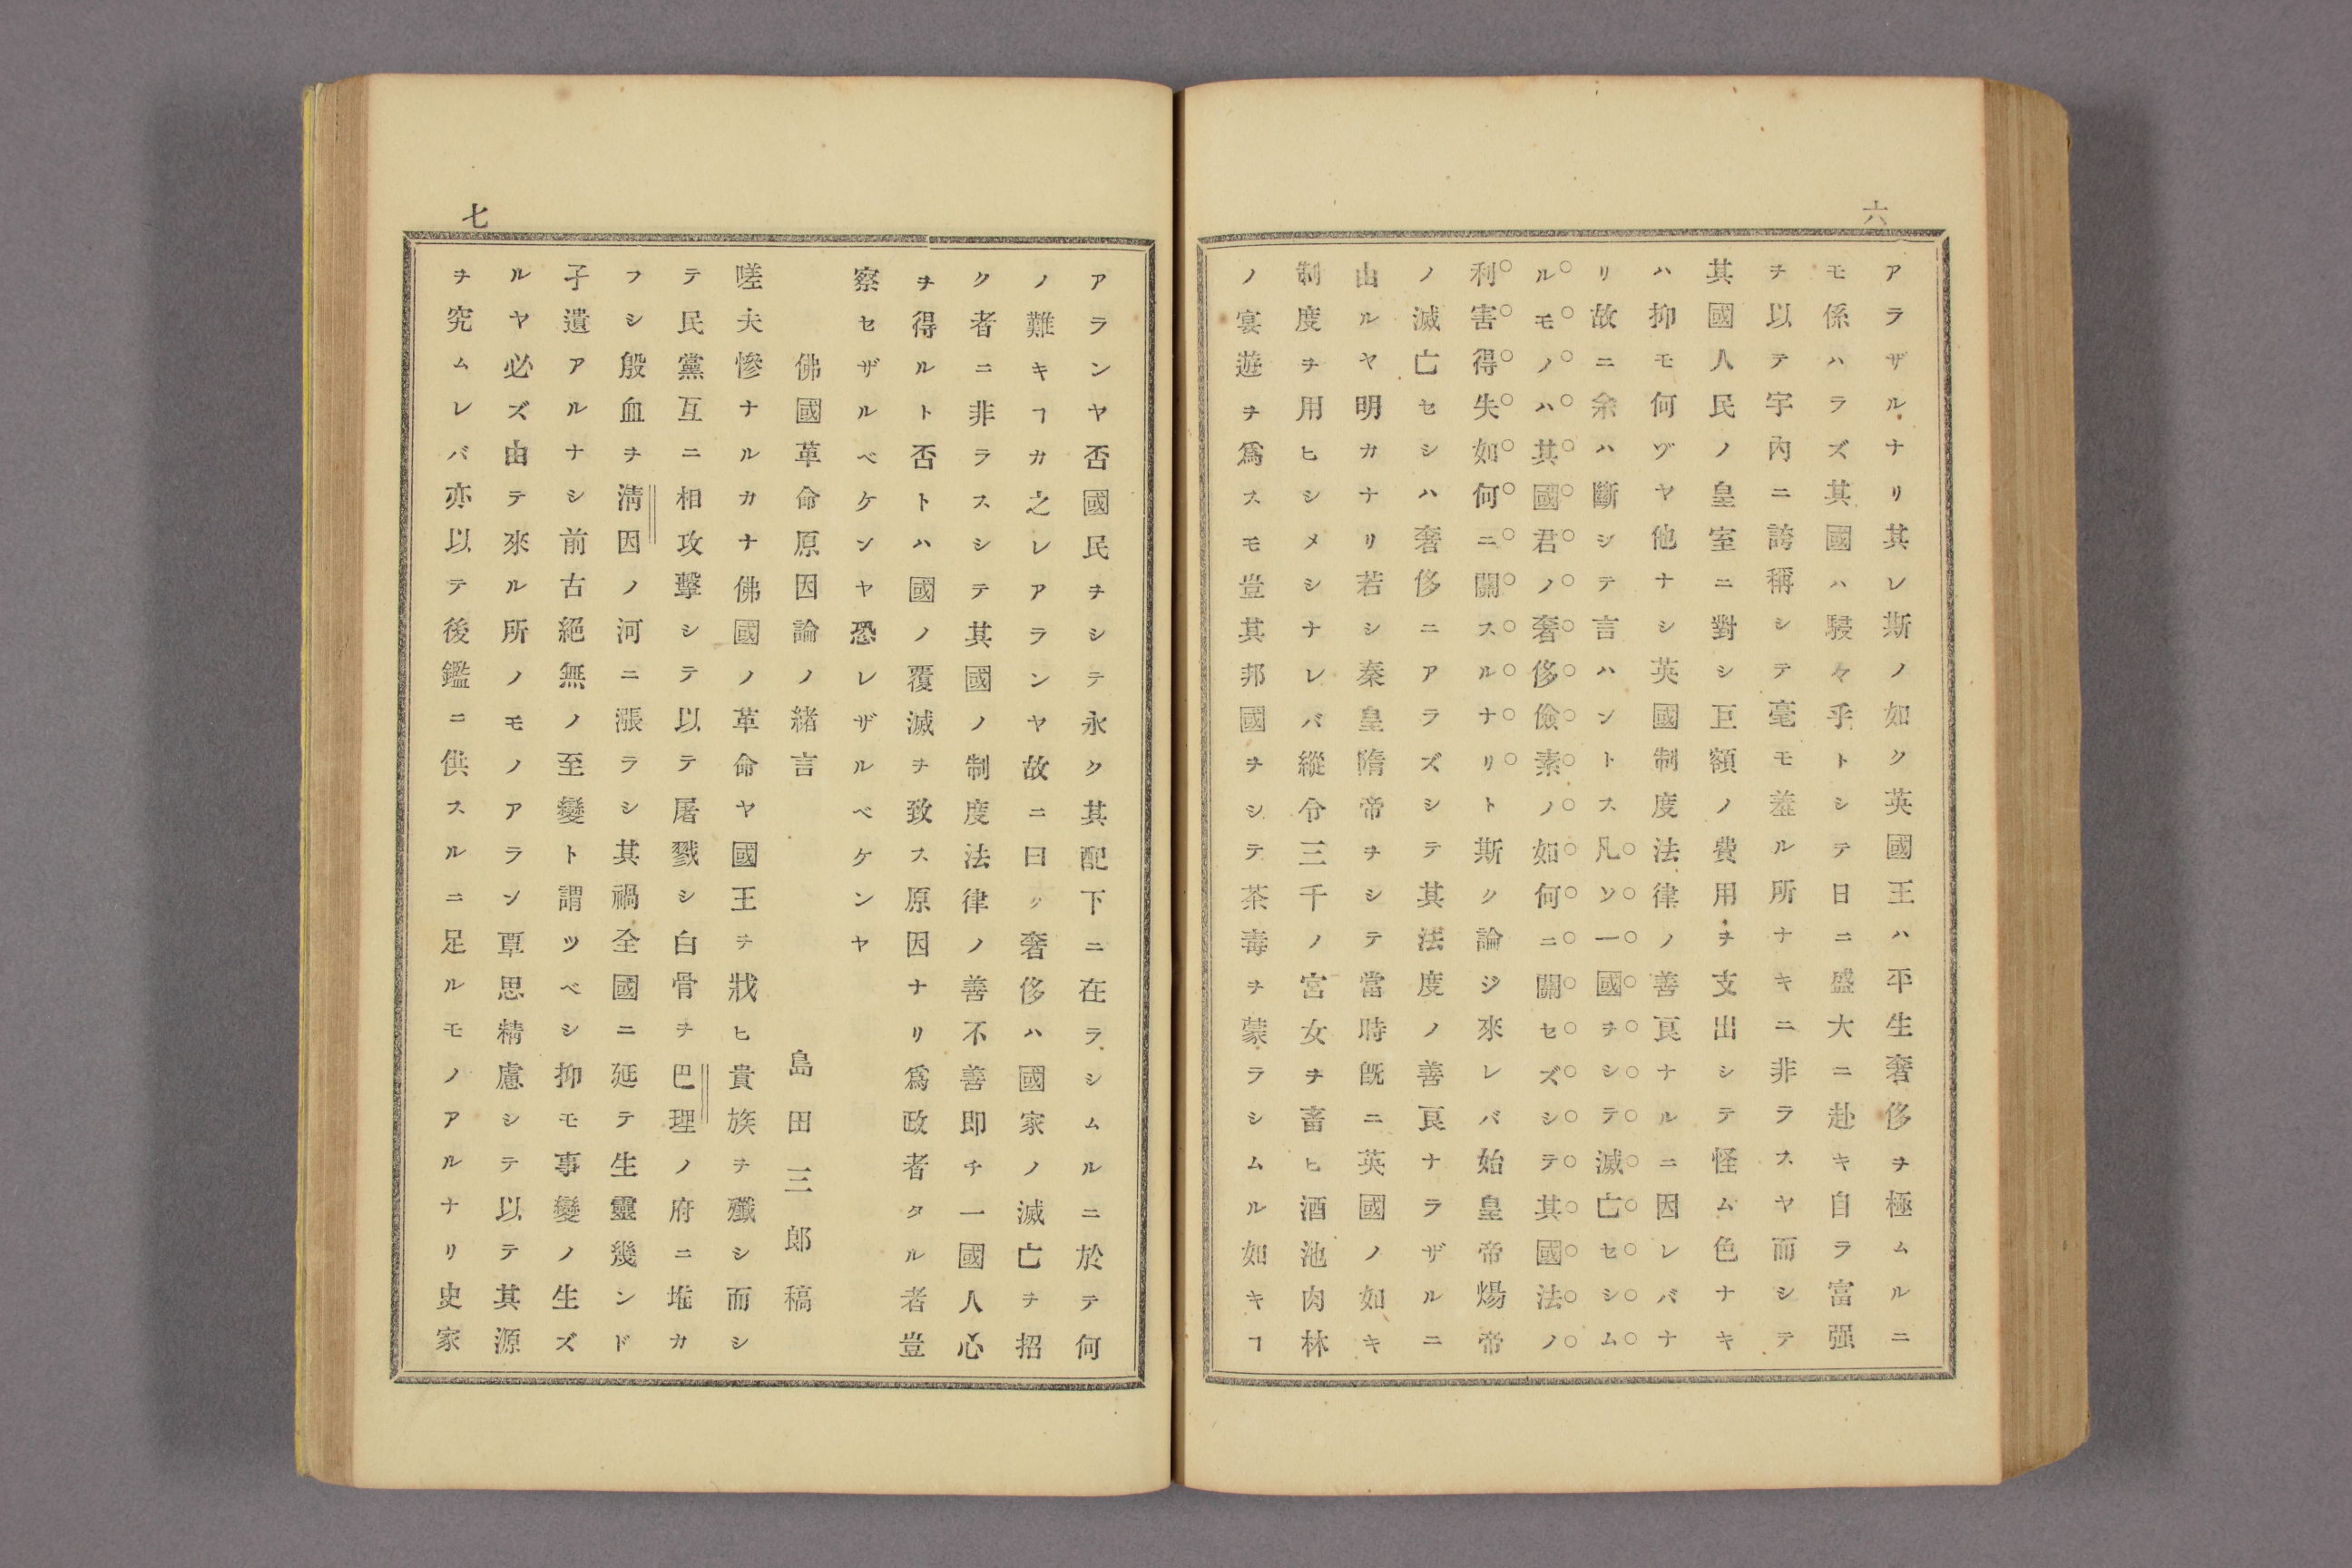 六
アラザルナリ其レ斯ノ如ク英國王ハ平生奢侈ヲ極ムルニ
モ係ハラズ其國ハ駸々乎トシテ日ニ盛大ニ赴キ自ラ富强
ヲ以テ宇內ニ誇稱シテ毫モ羞ル所ナキニ非ラスヤ而シテ
其國人民ノ皇室ニ對シ巨額ノ費用ヲ支出シテ怪ム色ナキ
ハ抑モ何ヅヤ他ナシ英國制度法律ノ善良ナルニ因レバナ
リ故ニ余ハ斷ジテ言ハントス凡ソ一國ヲシテ滅亡セシム
ルモノハ其國君ノ奢侈儉素ノ如何ニ關セズシテ其國法ノ
利害得失如何ニ關スルナリト斯ク論ジ來レバ始皇帝煬帝
ノ滅亡セシハ奢侈ニアラズシテ其法度ノ善良ナラザルニ
由ルヤ明カナリ若シ秦皇隋帝ヲシテ當時旣ニ英國ノ如キ
制度ヲ用ヒシメシナレバ縱令三千ノ宮女ヲ畜ヒ酒池肉林
ノ宴遊ヲ爲スモ豈其邦國ヲシテ茶毒ヲ蒙ラシムル如キヿ
七
アランヤ否國民ヲシテ永ク其配下ニ在ラシムルニ於テ何
ノ難キヿカ之レアランヤ故ニ曰ク奢侈ハ國家ノ滅亡ヲ招
ク者ニ非ラスシテ其國ノ制度法律ノ善不善即チ一國人心
ヲ得ルト否トハ國ノ覆滅ヲ致ス原因ナリ爲政者タル者豈
察セザルベケンヤ恐レザルベケンヤ
佛國革命原因論ノ緖言
島田三郎稿
嗟夫慘ナルカナ佛國ノ革命ヤ國王ヲ戕ヒ貴族ヲ殲シ而シ
テ民黨互ニ相攻擊シテ以テ屠戮シ白骨ヲ巴理ノ府ニ堆カ
フシ殷血ヲ淸因ノ河ニ漲ラシ其禍全國ニ延テ生靈幾ンド
孑遺アルナシ前古絕無ノ至變ト謂ツベシ抑モ事變ノ生ズ
ルヤ必ズ由テ來ル所ノモノアラン覃思精慮シテ以テ其源
ヲ究ムレバ亦以テ後鑑ニ供スルニ足ルモノアルナリ史家